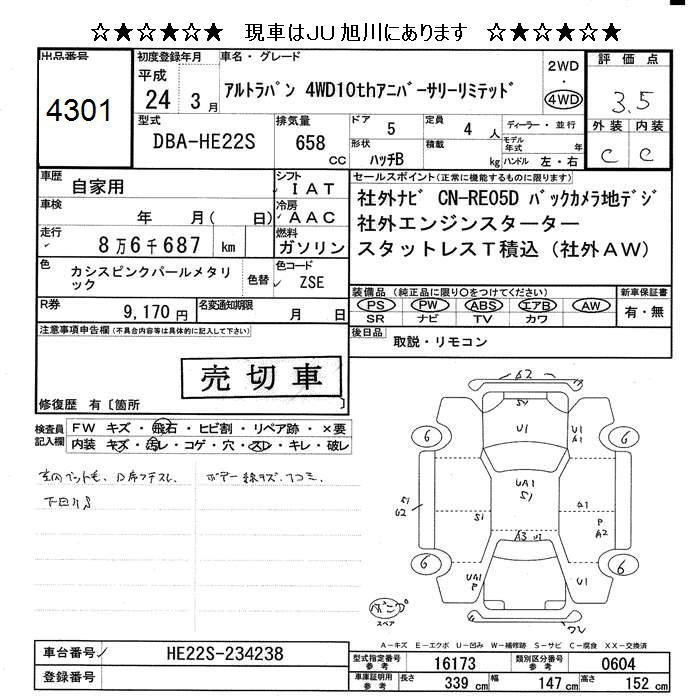 ☆★☆★☆★ 現車はJU旭川にあります ☆★☆★☆★
出品番号
4301
初度登録年月
平成
24 3月
車名・グレード
アルトラパン 4WD10thアニバーサリーリミテッド
2WD
・
4WD
評価点
3.5
外装 内装
C C
型式
DBA-HE22S
排気量
658
CC
ドア 5
定員 4 人
ディーラー・並行
形状 ハッチB
積載 kg
モデル年式 年
ハンドル 左・右
車歴
自家用
シフト
IAT
車検
年 月( 日)
冷房
AAC
走行
8万6千687 km
燃料
ガソリン
色
カシスピンクパールメタリック
色替
色コード
ZSE
R券
9,170円
名変通知期限
月 日
セールスポイント(正常に機能するものに限ります)
社外ナビ CN-RE05D バックカメラ地デジ
社外エンジンスターター
スタットレスT積込(社外AW)
装備品(純正品に限り〇をつけてください)
PS PW ABS エアB AW
SR ナビ TV カワ
新車保証書
有・無
後日品
取説・リモコン
注意事項申告欄(不具合内容等は具体的に記入して下さい)
売切車
修復歴 有〔箇所 〕
検査員記入欄
FW キズ・飛石・ヒビ割・リペア跡・×要
内装 キズ・汚レ・コゲ・穴・スレ・キレ・破レ
下回りS
G2
S1
U1
U1
A1
6
6
UA1
S1
S1
G2
S1
A1
P
A2
A3 U1
6
6
UA1
P
U1
スペア
A-キズ E-エクボ U-凹み W-補修跡 S-サビ C-腐食 XX-交換済
車台番号
HE22S-234238
登録番号
型式指定番号参考
16173
類別区分番号参考
0604
車庫証明用参考
長さ 339 cm
幅 147 cm
高さ 152 cm